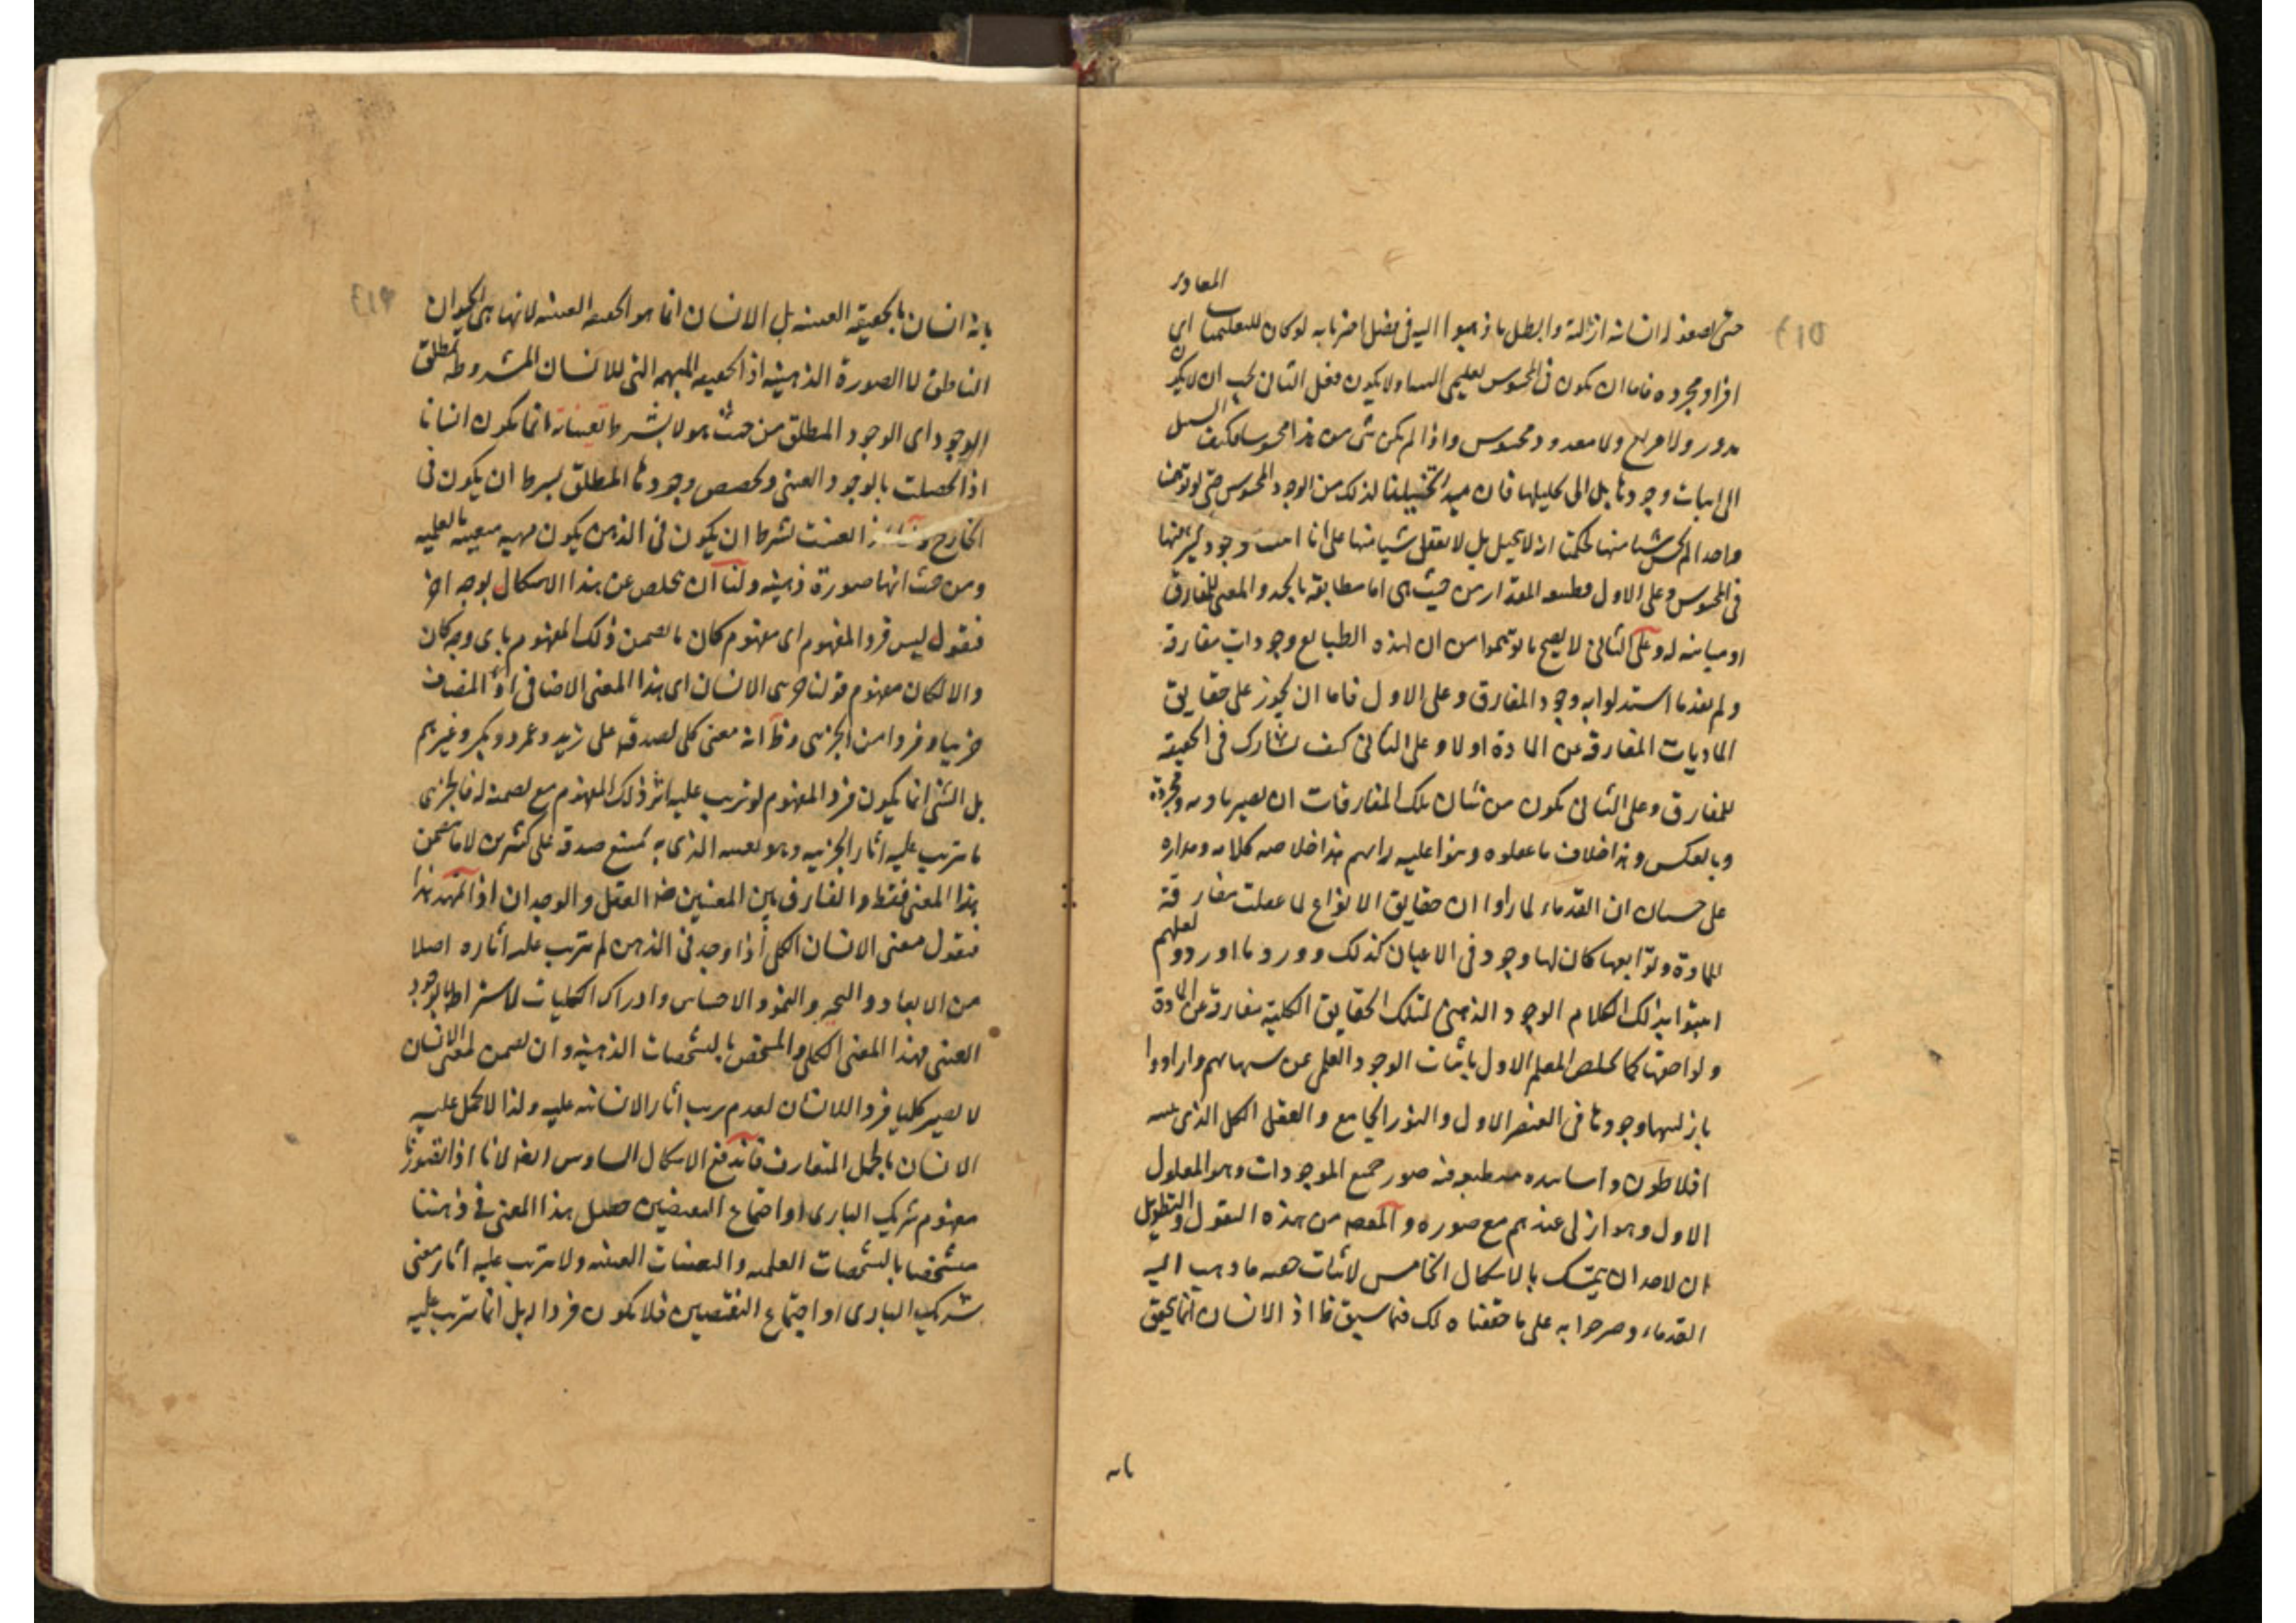 المعاد
حتى ان انسانه ازلية وابطل ما ذهبوا اليه فى فصل اخر بانه لو كان للتعليميات اى
افراد مجرده فاما ان يكون فى المحسوس تعليمى البتة او لا يكون فعلى الثانى يجب ان لا يكون
مدور ولا مربع ولا معدود محسوس واذا لم يكن شى من هذا محسوسا فكيف السبيل
الى اثبات وجودها بل الى تخيلها فان مبدا تخيلنا لذلك من الوجود المحسوس حتى لو توهمنا
واحدا لم يحس شيا منها لحكمنا انه لا يتخيل بل لا يعقل شيا منها على انا اثبتنا وجود كثير منها
فى المحسوس وعلى الاول فطبيعة المقدار من حيث هى اما مطابقة بالحد والمعنى للمفارق
او مباينه له وعلى الثانى لا يصح ما توهموا من ان لهذه الطبايع وجودات مفارقة
ولم يفد ما استدلوا به وجود المفارق وعلى الاول فاما ان يجوز على حقايق
الماديات المفارقة عن المادة او لا وعلى الثانى كيف يشارك فى الحقيقة
للمفارق وعلى الثانى يكون من شان تلك المفارقات ان يصير مادية ومجردة
وبالعكس وهذا خلاف ما عقلوه وبنوا عليه رايهم هذا خلاصه كلامه ومداره
على حسبان ان القدماء لما راوا ان حقايق الانواع لما عقلت مفارقة
للمادة وتوابعها كان لها وجود فى الاعيان كذلك وورود ما اوردوه لعلهم
اثبتوا بذلك الكلام الوجود الذهنى لتلك الحقايق الكلية مفارقة عن المادة
ولواحقها كما تخلص المعلم الاول باثبات الوجود العلمى عن شبهاتهم وارادوا
بازليتها وجودها فى العنصر الاول والنور الجامع والعقل الكل الذى
افلاطون واساتيده منطبع فيه صور جميع الموجودات وهو المعلول
الاول وهو ازلى عندهم مع صوره والمقصود من هذه النقول والتطويل
ان لاحد ان يتمسك بالاشكال الخامس لاثبات حقية ما ذهب اليه
القدماء وصرحوا به على ما حققناه لك فيما سبق ظ اذ الانسان انما يتحقق
بانه
بانه انسان بالحقيقة العينيه بل الانسان انما هو الحقيقه العينيه لانها هى الحيوان
الناطق لا الصورة الذهنيه اذ الحقيقه المبهمه التى للانسان المشروطه بمطلق
الوجود اى الوجود المطلق من حيث هو لا بشرط تعيناته انما يكون انسانا
اذا حصلت بالوجود العينى وتخصص وجودها المطلق بشرط ان يكون فى
الخارج اذا تعينت بشرط ان يكون فى الذهن يكون مهيه معينه علميه
ومن حيث انها صورة ذهنيه ولنا ان نخلص عن هذا الاشكال بوجه اخر
فنقول ليس فرد المفهوم اى مفهوم كان ما يتضمن ذلك المفهوم باى وجه كان
والا لكان مفهوم قولنا جزئى الانسان اى هذا المعنى الاضافى او المضاف
جزييا وفردا من الجزئى وظ انه معنى كلى لصدقه على زيد وعمرو وبكر وغيرهم
بل الشئ انما يكون فرد المفهوم لو ترتب عليه اثر ذلك المفهوم مع تضمنه له فالجزئى
ما ترتب عليه اثار الجزئيه وهو تعينه الذى به يمتنع صدقه على كثيرين لا ما يتضمن
هذا المعنى فقط والفارق بين المعنيين هو العقل والوجدان اذا تمهد هذا
فنقول معنى الانسان الكلى اذا وجد فى الذهن لم يترتب عليه اثاره اصلا
من الابعاد والتحيز والنمو والاحساس وادراك الكليات لاشتراطها بالوجود
العينى فهذا المعنى الكلى والمتشخص بالتشخصات الذهنيه وان تضمن لمعنى الانسان
لا يصير كليا فردا للانسان لعدم ترتب اثار الانسانيه عليه ولذا لا يحمل عليه
الانسان بالحمل المتعارف فاندفع الاشكال السادس ايضا لانا اذا تصورنا
مفهوم شريك البارى او اجتماع النقيضين حصل هذا المعنى فى ذهننا
متشخصا بالتشخصات العلميه والتعينات العينيه ولا يترتب عليه اثار معنى
شريك البارى او اجتماع النقيضين فلا يكون فردا له بل انما يترتب عليه